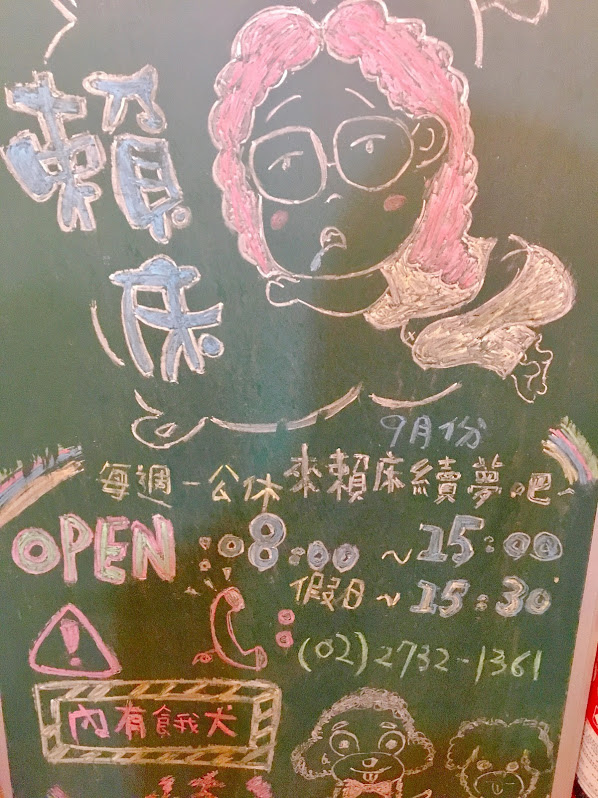 賴床
9月份
每週一公休 來賴床續夢吧~
OPEN:08:00~15:00
假日~15:30
(02)2732-1361
內有餓犬